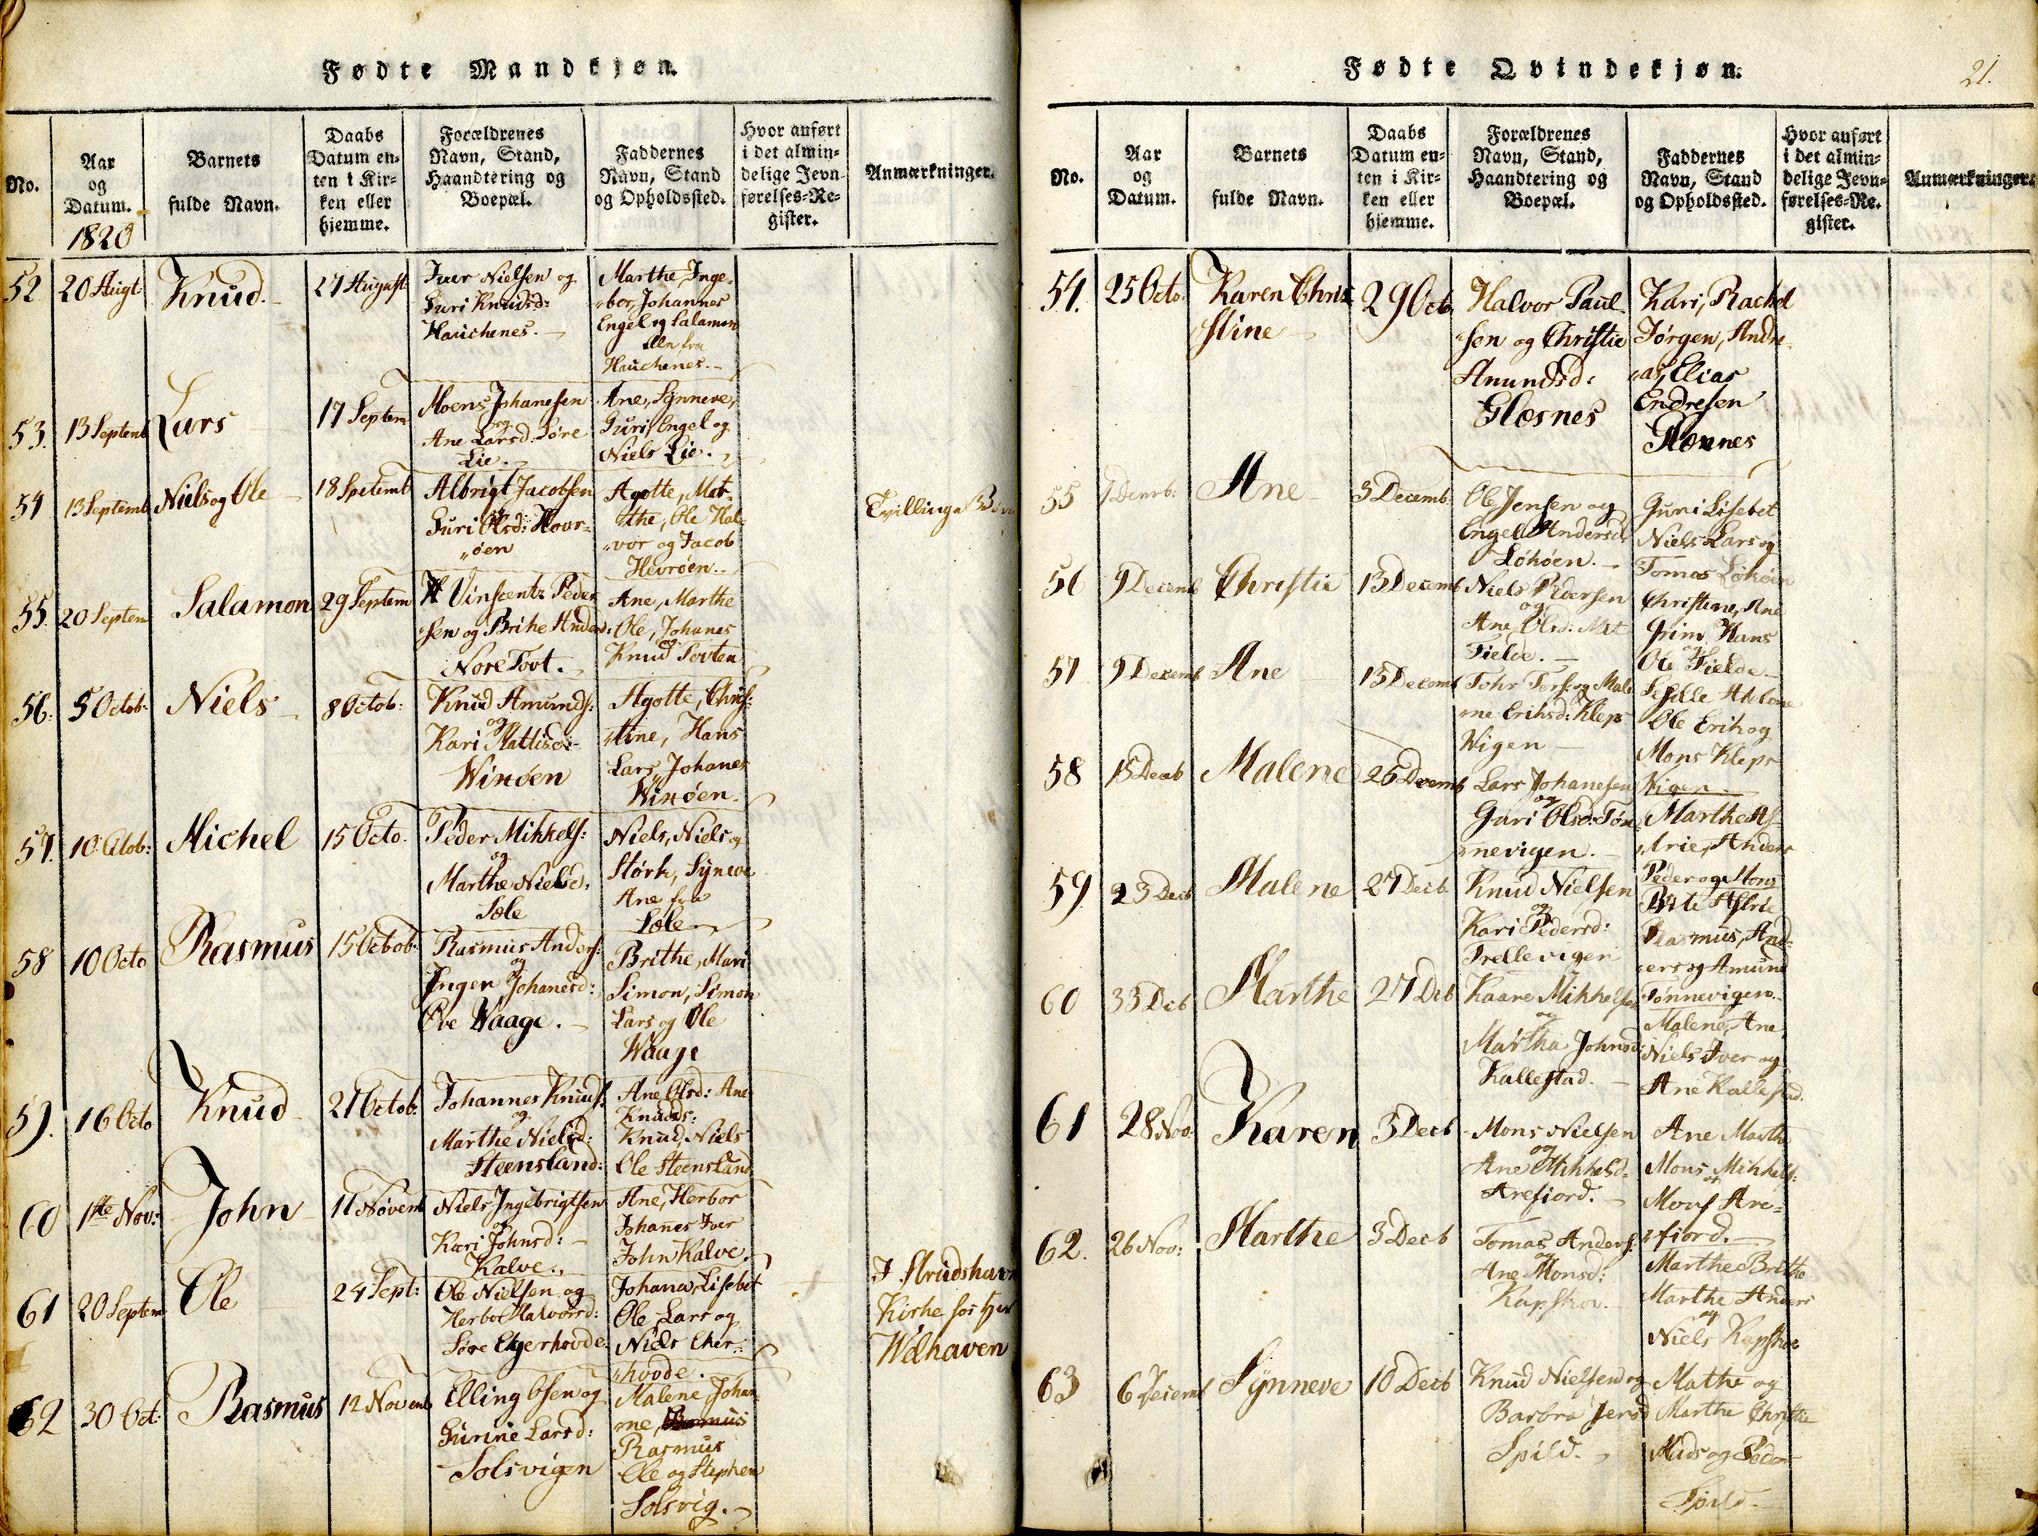 Fødte Mandkjøn.
No.
Aar
og
Datum.
1820
Barnets
fulde Navn.
Daabs
Datum en-
ten i Kir-
ken eller
hjemme.
Forældrenes
Navn, Stand,
Haandtering og
Boepæl.
Faddernes
Navn, Stand
og Opholdssted.
Hvor anført
i det almin-
delige Jevn-
førelses-Re-
gister.
Anmærkninger.
52 20 Augt: Knud. 27 August
Iver Nielsen og
Guri Knudsd:
Hauchenes.
Marthe, Inge-
bor, Johannes
Engel og Salamon
alle fra
Hauchenes.
53. 13 Septemb Lars 17 Septem
Moens Johanesen
og
Ane Larsd: Søre
Lie.
Ane, Synneve,
Guri, Engel og
Niels Lie.
54 13 Septemb Niels og Ole 18 Septemb
Albrigt Jacobsen
Guri Olsd: Hovr-
øen
Agotte, Mar-
the, Ole Hal-
vor og Jacob
Hevrøen.
Tvillinge
55. 20 Septem Salamon 29 Septem
Vinscentz Peder
sen og Brihe Andersd:
Nore Tovt.
Ane, Marthe
Ole, Johanes
og
Knud Tovten
56: 5 Octob: Niels 8 Octob:
Knud Amunds:
og
Kari Mattisd:
Winøen
Agotte, Chris:
tine, Hans
Lars, Johanes
Winøen.
57. 10 Octob: Michel 15 Octo.
Peder Mikkels:
og
Marthe Nielsd:
Sæle
Niels, Niels og
Størk, Syneve
Ane fra
Sæle.
58 10 Octo Rasmus 15 Octob:
Rasmus Anders:
og
Inger Johanesd:
Øve Waage.
Brithe, Mari
Simon, Simon
Lars og Ole
Waage
59. 16 Octo Knud 27 Octob:
Johannes Knuds:
og
Marthe Nielsd:
Steensland:
Ane Olsd: Ane
Knudsd:
Knud, Niels
Ole Steensland
60 1ste Nov: John 11 Novemb
Niels Ingebrigtsen
og
Kari Johnsd:
Kalve.
Ane, Herbor
Johanes Iver
John Kalve.
61 20 Septem Ole 24 Sept:
Ole Nielsen og
Herbor Halvorsd:
Søre Ekerhovde.
Johana, Lisebet
Ole Lars og
Niels Eker-
hovde.
Kirke for Hr
Welhaven
62 30 Oct: Rasmus 12 Novemb
Elling Olsen og
Gurine Larsd:
Solsvigen
Malene Johan-
ne,
Rasmus
Ole og Stephen
Solsvig.
Fødte Qvindekjøn.
21.
No.
Aar
og
Datum.
Barnets
fulde Navn.
Daabs
Datum en-
ten i Kir-
ken eller
hjemme.
Forældrenes
Navn, Stand,
Haandtering og
Boepæl.
Faddernes
Navn, Stand
og Opholdssted.
Hvor anført
i det almin-
delige Jevn-
førelses-Re-
gister.
Anmærkninger.
54. 25 Octo. Karen Chris
stine
29 Octo.
Halvor Paul-
sen og Christie
Anundsd:
Glæsnes
Kari, Rachel
Jørgen, Andre-
as, Elias
Endresen
Glæsnes
55 Ane 3 Decemb
Ole Jensen og
Engel Andersd:
Løhøen.
Guri Lisebet
Niels Lars og
Tomas Løhøen
56 9 Decemb Christie 13 Decemb
Niels Pedersen
og
Ane Olsd: Met
Fielde.
Christine, Ane
Grim, Hans
og
Ole Fielde
57 9 Decemb Ane 13 Decemb
Male-
ne Eriksd: Kleps
Wigen
Ole Erik og
Mons Kleps
Wigen
58 15 Decb Malene 26 Decemb
Lars Johanesen
og
Guri Olsd: Tøn-
nevigen.
Marthe As-
trie, Anders
Peder og Mons
59. 23 Decb Malene 27 Decb
Knud Nielsen
og
Kari Pedersd:
Trellevigen
Brite Astrie
Rasmus, And-
ers og Amund
Tønnevigen
60 33 Decb Marthe 27 Decb
Kaare Mikkelsen
og
Martha Johnsd:
Kallestad.
Malene, Ane
Niels Iver og
Ane Kallestad.
61 28 Nov: Karen 3 Decb
Mons Nielsen
og
Ane Mikkelsd:
Arefiord.
Ane Marthe
Mons Mikkels:
og
Mons Are-
fiord.
62. 26 Nov: Marthe 3 Decb
Tomas Anders:
og
Ane Monsd:
Kapskov.
Marthe Brithe
Marthe Anders
og
Niels Kapskov
63 6 Decemb Synneve 10 Decb
Knud Nielsen og
Barbra Jensd
Spild.
Mathe og
Marthe Christie
Mads og Peder
Spild.